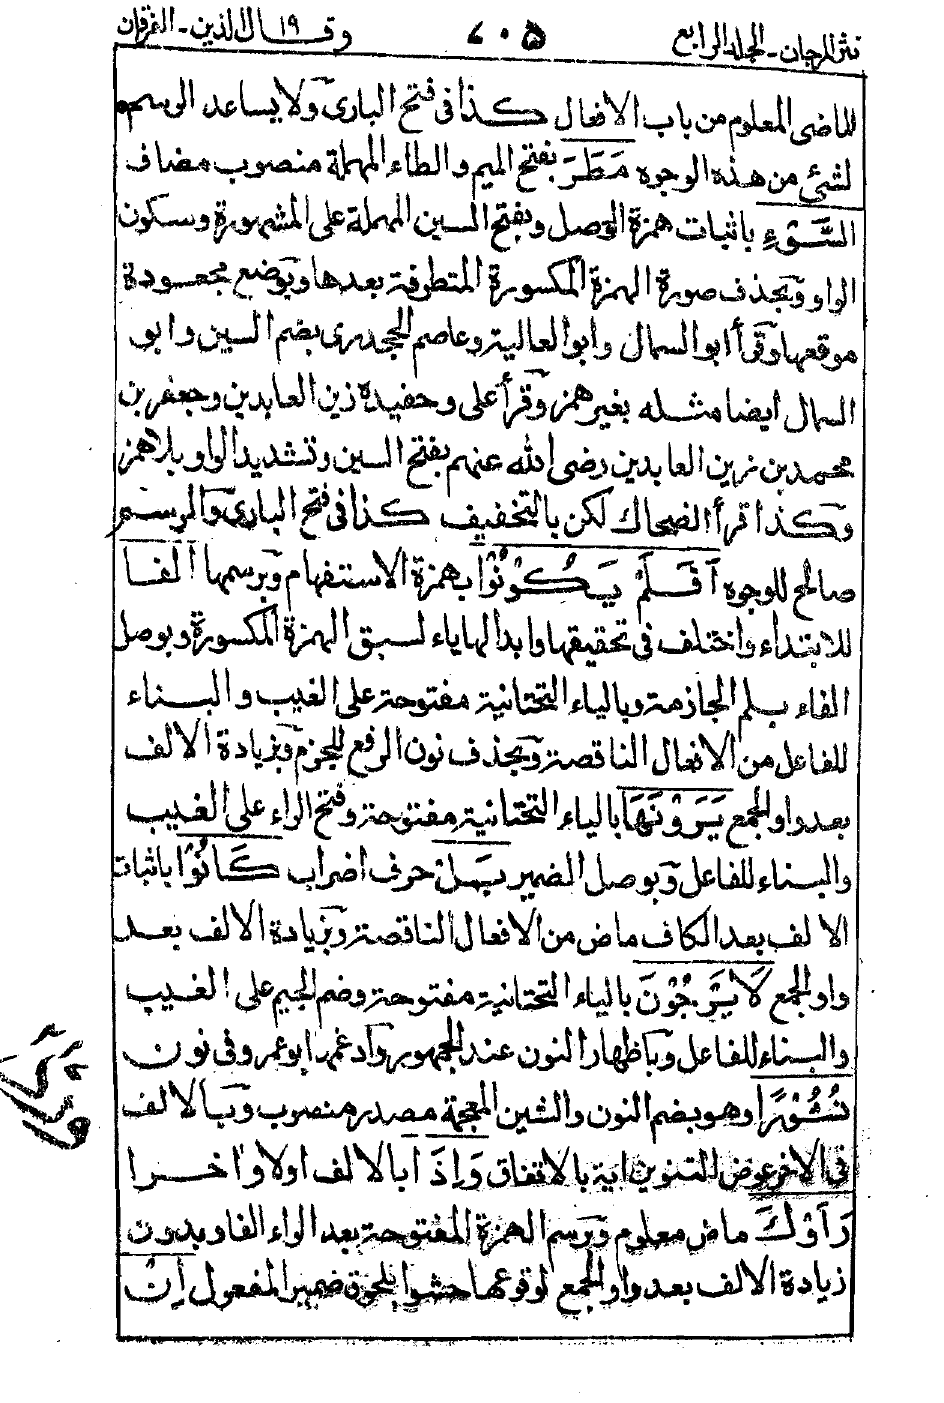 نثر المرجان - الجلد الرابع ٤٠٥ وقال الذين ١٩ - الفرقان
للماضى المعلوم من باب الافعال كذا فى فتح البارى ولا يساعد الرسم
لشئ من هذه الوجوه مَطَرَ بفتح الميم والطاء المهملة منصوب مضاف
السَّوْءِ باثبات همزة الوصل وبفتح السين المهملة على المشهورة وسكون
الواو وبحذف صورة الهمزة المكسورة المتطرفة بعدها ويوضع مجعودة
موقعها وقرأ ابو السمال وابو العالية وعاصم الجحدرى بضم السين وابو
السمال ايضا مثله بغير همز وقرأ على وحفيده زين العابدين وجعفر بن
محمد بن زين العابدين رضى الله عنهم بفتح السين وتشديد الواو بلا همز
وكذا قرأ الضحاك لكن بالتخفيف كذا فى فتح البارى والرسم
صالح للوجوه اَفَلَمْ يَكُوْنُوْا بهمزة الاستفهام وبرسمها الفا
للابتداء واختلف فى تحقيقها وابدالها ياء لسبق الهمزة المكسورة وبوصل
الفاء بلم الجازمة وبالياء التحتانية مفتوحة على الغيب والبناء
للفاعل من الافعال الناقصة وبحذف نون الرفع للجزم وبزيادة الالف
بعد واو الجمع يَرَوْنَهَا بالياء التحتانية مفتوحة وفتح الراء على الغيب
والبناء للفاعل وبوصل الضمير بَلْ حرف اضراب كَانُوْا باثبات
الالف بعد الكاف ماض من الافعال الناقصة وبزيادة الالف بعد
واو الجمع لَا يَرْجُوْنَ بالياء التحتانية مفتوحة وضم الجيم على الغيب
والبناء للفاعل وباظهار النون عند الجمهور وادغمها ابو عمرو فى نون
نُشُوْرًا وهو بضم النون والشين المعجمة مصدر منصوب وبالالف
فى الاخر عوض للتنوين اية بالاتفاق وَاِذَا بالالف اولا واخرا
رَاَوْكَ ماض معلوم وبرسم الهمزة المفتوحة بعد الراء الفا وبدون
زيادة الالف بعد واو الجمع لوقوعها حشوا بلحوق ضمير المفعول اِنْ